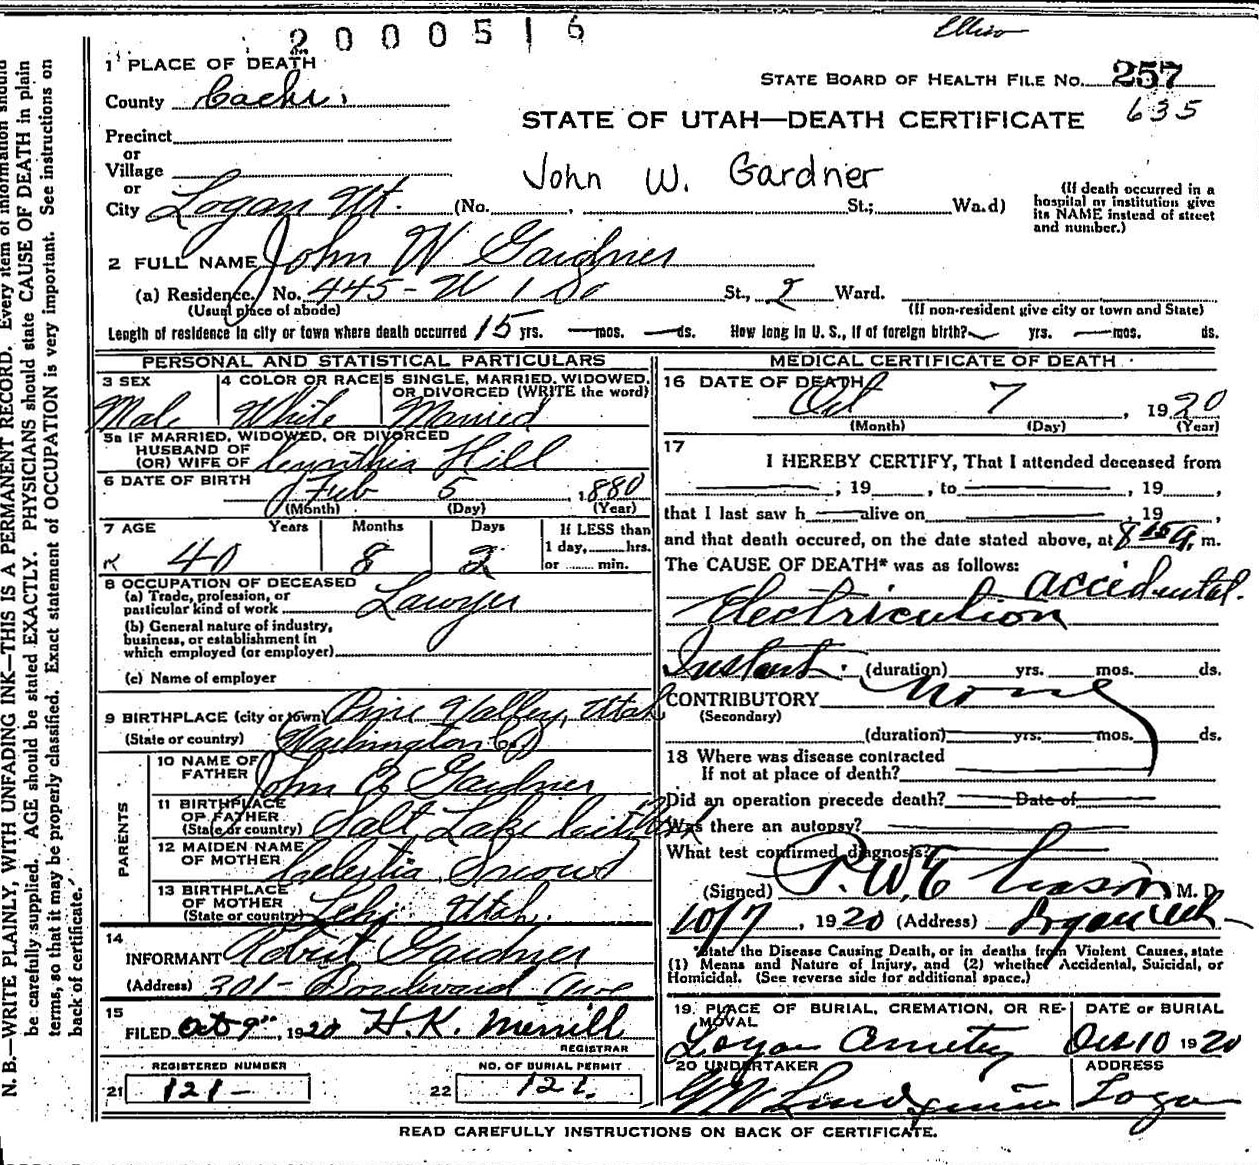 2000516
Ellison
1 PLACE OF DEATH
STATE BOARD OF HEALTH FILE NO. 257
635
County Cache.
STATE OF UTAH—DEATH CERTIFICATE
Precinct
or
Village
John W. Gardner
or
City Logan Ut. (No. , St.; Wa.d)
(If death occurred in a
hospital or institution give
its NAME instead of street
and number.)
2 FULL NAME John W Gardner
(a) Residence. No. 445 - W 1 So St., 2 Ward.
(Usual place of abode) (If non-resident give city or town and State)
Length of residence in city or town where death occurred 15 yrs. — mos. — ds. How long in U. S., if of foreign birth? yrs. — mos. ds.
PERSONAL AND STATISTICAL PARTICULARS
3 SEX 4 COLOR OR RACE 5 SINGLE, MARRIED, WIDOWED,
OR DIVORCED (WRITE the word)
Male White Married
5a IF MARRIED, WIDOWED, OR DIVORCED
HUSBAND OF
(OR) WIFE OF Cynthia Hill
6 DATE OF BIRTH Feb 5, 1880
(Month) (Day) (Year)
7 AGE Years Months Days If LESS than
1 day, hrs.
40 8 2 or min.
8 OCCUPATION OF DECEASED
(a) Trade, profession, or
particular kind of work Lawyer
(b) General nature of industry,
business, or establishment in
which employed (or employer)
(c) Name of employer
9 BIRTHPLACE (city or town) Pine Valley, Utah
(State or country) Washington Co
PARENTS
10 NAME OF
FATHER John Gardner
11 BIRTHPLACE
OF FATHER
(State or country) Salt Lake
12 MAIDEN NAME
OF MOTHER Celestia Snow
13 BIRTHPLACE
OF MOTHER
(State or country) Lehi Utah.
14
INFORMANT Robert Gardner
(Address) 301 - Boulevard Ave
15
FILED Oct 9", 1920 H.K. Merrill
REGISTRAR
REGISTERED NUMBER NO. OF BURIAL PERMIT
21 121- 22 121.
MEDICAL CERTIFICATE OF DEATH
16 DATE OF DEATH
Oct 7, 1920
(Month) (Day) (Year)
17
I HEREBY CERTIFY, That I attended deceased from
; 19 , to , 19 ,
that I last saw h alive on , 19 ,
and that death occured, on the date stated above, at 8 15 a. m.
The CAUSE OF DEATH* was as follows:
accidental.
Electricution
Instant. (duration) yrs. mos. ds.
CONTRIBUTORY None
(Secondary)
(duration) yrs. mos. ds.
18 Where was disease contracted
If not at place of death?
Did an operation precede death? Date of
Was there an autopsy?
What test confirmed diagnosis?
(Signed) P.W.E M. D.
10/7, 1920 (Address) Logan Utah
*State the Disease Causing Death, or in deaths from Violent Causes, state
(1) Means and Nature of Injury, and (2) whether Accidental, Suicidal, or
Homicidal. (See reverse side for additional space.)
19. PLACE OF BURIAL, CREMATION, OR RE-
MOVAL DATE OF BURIAL
Logan Cemetery Oct 10 1920
20 UNDERTAKER ADDRESS
Lindquist Logan
READ CAREFULLY INSTRUCTIONS ON BACK OF CERTIFICATE.
N. B.—WRITE PLAINLY, WITH UNFADING INK—THIS IS A PERMANENT RECORD. Every item of information should
be carefully supplied. AGE should be stated EXACTLY. PHYSICIANS should state CAUSE OF DEATH in plain
terms, so that it may be properly classified. Exact statement of OCCUPATION is very important. See instructions on
back of certificate.